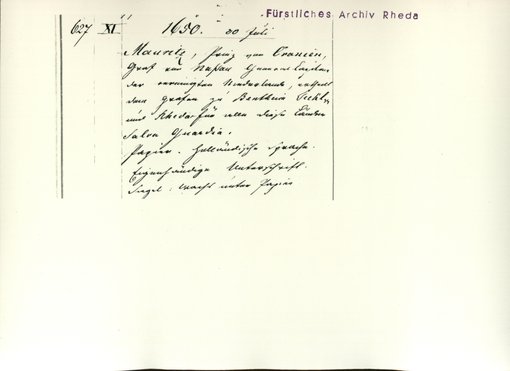 Fürstliches Archiv Rheda
627 XI 1650. 20 Juli
Mauritz, Prinz von Oranien,
Graf von Naßau General Capitan
der vereinigten Niederlande, ertheilt
dem Grafen zu Bentheim Teckl.
und Rheda für alle diese Länder
Salva Guardia.
Papier. Holländische Sprache.
Eigenhändige Unterschrift.
Siegel: Wachs unter Papier